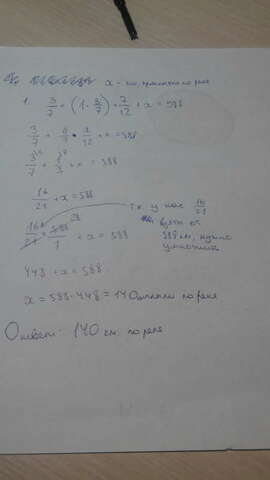 x - км. проплыли по реке
1. 3/7 + (1 - 3/7) · 7/12 + x = 588
3/7 + 4/7 · 7/12 + x = 588
3/7 + 1/3 + x = 588
16/21 + x = 588
т.к у нас 16/21
взяты от
588 км, нужно
умножить
16/21 · 588/1 + x = 588
448 + x = 588
x = 588 - 448 = 140 по реке
Ответ: 140 км. по реке